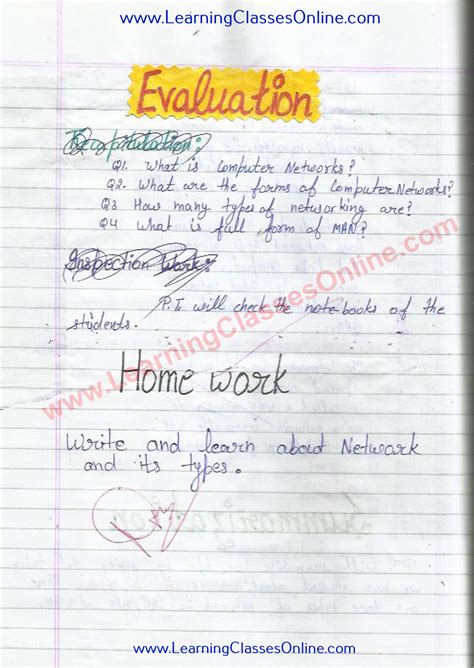 www.LearningClassesOnline.com
Evaluation
Recapitulation:
Q1. What is Computer Networks?
Q2. What are the forms of Computer Networks?
Q3 How many types of networking are?
Q4 What is full form of MAN?
Inspection Work:
P.T will check the note-books of the
students.
www.LearningClassesOnline.com
Home work
Write and learn about Network
and its types.
www.LearningClassesOnline.com